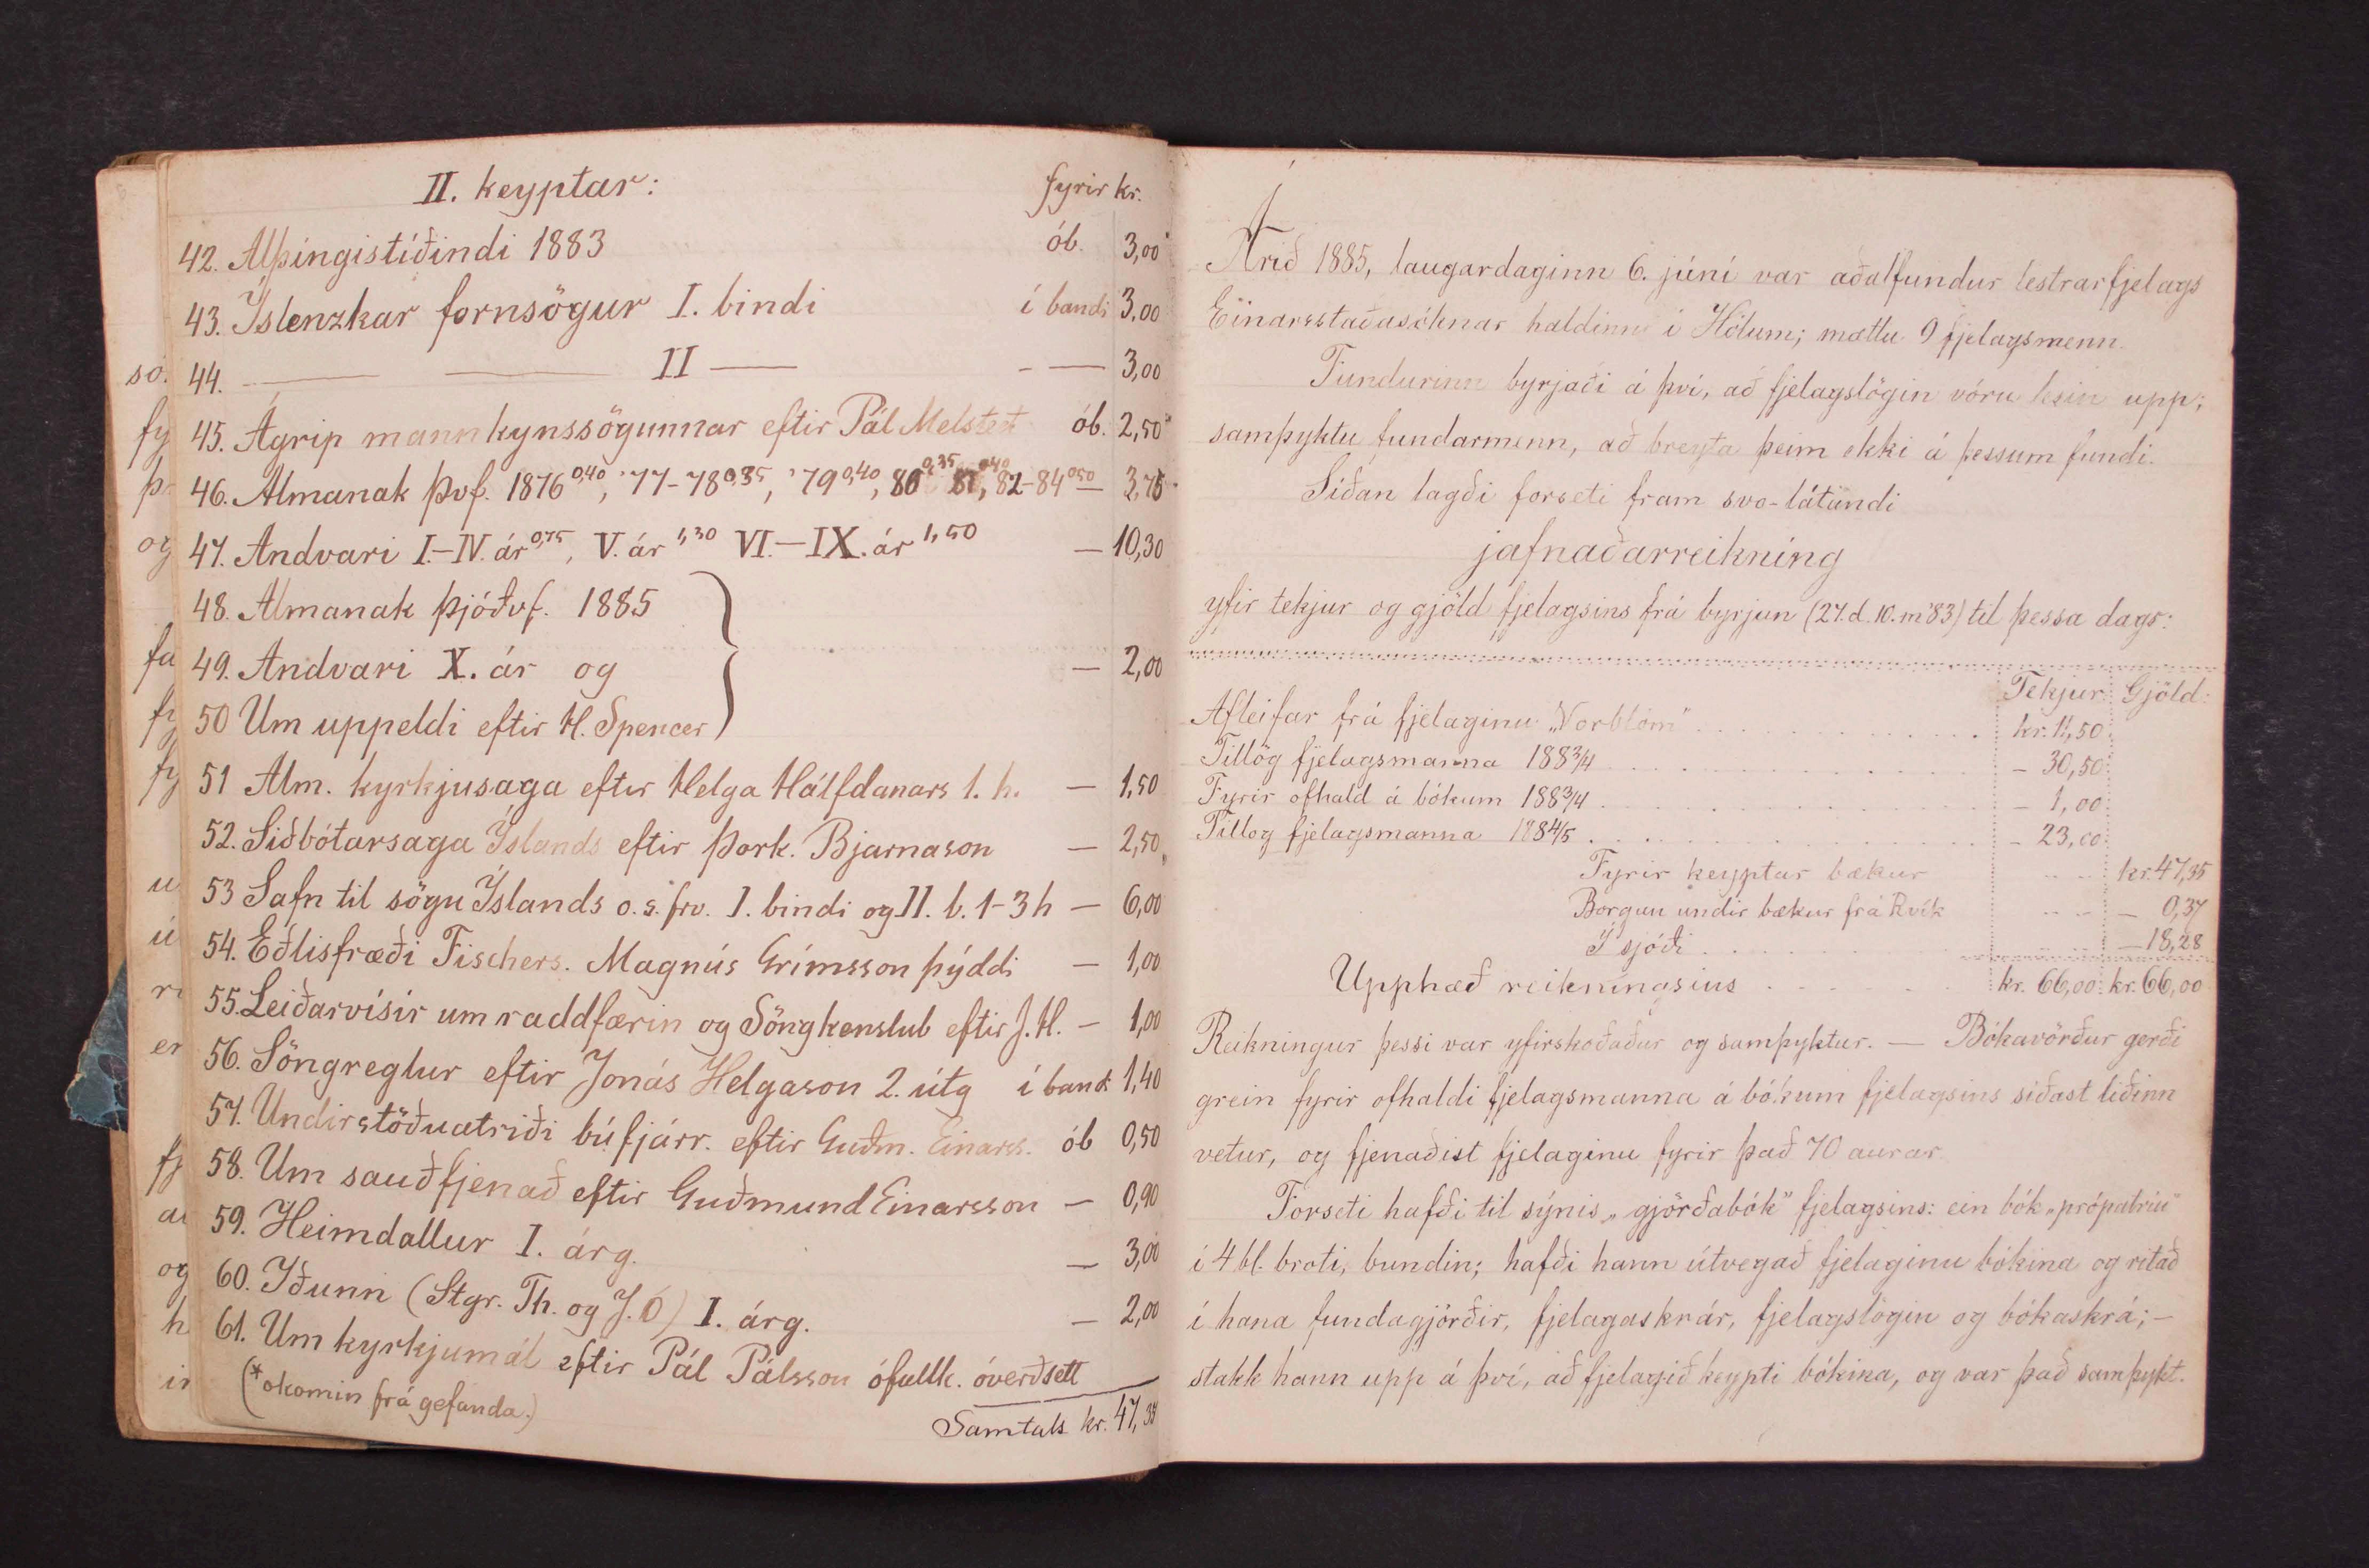 II. keyptar: fyrir kr.
42. Alþingistíðindi 1883 ób. 3,00
43. Íslenzkar fornsögur I. bindi í bandi 3,00
44. — — II — - — 3,00
45. Ágrip mannkynssögunnar eftir Pál Melsteð ób. 2,50
46. Almanak Þvf. 1876 0,40, '77-78 0,35, '79 0,40, 80 0,35 81 0,40, 82-84 0,50 — 3,75
47. Andvari I.-IV. ár 0,75, V. ár 1,30 VI.-IX. ár 1,50 — 10,30
48. Almanak Þjóðvf. 1885
49. Andvari X. ár og — 2,00
50 Um uppeldi eftir H. Spencer
51 Alm. kyrkjusaga eftir Helga Hálfdanars 1. h. — 1,50
52. Siðbótarsaga Íslands eftir Þork. Bjarnason — 2,50
53 Safn til sögu Íslands o.s.frv. I. bindi og II. b. 1-3 h — 6,00
54. Eðlisfræði Fischers. Magnús Grímsson þýddi — 1,00
55. Leiðarvísir um raddfærin og Söngkenslub eftir J.H. — 1,00
56. Söngreglur eftir Jonás Helgason 2. útg í band 1,40
57. Undirstöðuatriði búfjárr. eftir Guðm. Einarss. ób 0,50
58. Um sauðfjenað eftir Guðmund Einarsson — 0,90
59. Heimdallur I. árg. — 3,00
60. Iðunn (Stgr. Th. og J. Ó) I. árg. — 2,00
61. Um kyrkjumál eftir Pál Pálsson ófullk. óverðsett
(*okomin frá gefanda.)
Samtals kr. 47,35
Árið 1885, laugardaginn 6. júní var aðalfundur lestrarfjelags
Einarsstaðasóknar haldinn í Hólum; mættu 9 fjelagsmenn.
Fundurinn byrjaði á því, að fjelagslögin vóru lesin upp;
samþyktu fundarmenn, að breyta þeim ekki á þessum fundi.
Síðan lagði forseti fram svo-látandi
jafnaðarreikning
yfir tekjur og gjöld fjelagsins frá byrjun (27.d.10.m'83) til þessa dags:
Tekjur Gjöld:
Afleifar frá fjelaginu „Vorblóm" . . . kr. 11,50
Tillög fjelagsmanna 1883/4 . . . - 30,50
Fyrir ofhald á bókum 1883/4 . . . - 1,00
Tillog fjelagsmanna 1884/5 . . . - 23,00
Fyrir keyptar bækur kr. 47,35
Borgun undir bækur frá Rvík — 0,37
Í sjóði . . . — 18,28
Upphæð reikningsins . . . kr. 66,00 kr. 66,00
Reikningur þessi var yfirskoðaður og samþyktur. — Bókavörður gerði
grein fyrir ofhaldi fjelagsmanna á bókum fjelagsins síðast liðinn
vetur, og fjenaðist fjelaginu fyrir það 70 aurar.
Forseti hafði til sýnis „gjörðabók" fjelagsins: ein bók „própatria"
í 4 bl. broti, bundin; hafði hann útvegað fjelaginu bókina og ritað
í hana fundagjörðir, fjelagaskrár, fjelagslögin og bókaskrá; —
stakk hann upp á því, að fjelagið keypti bókina, og var það samþykt.